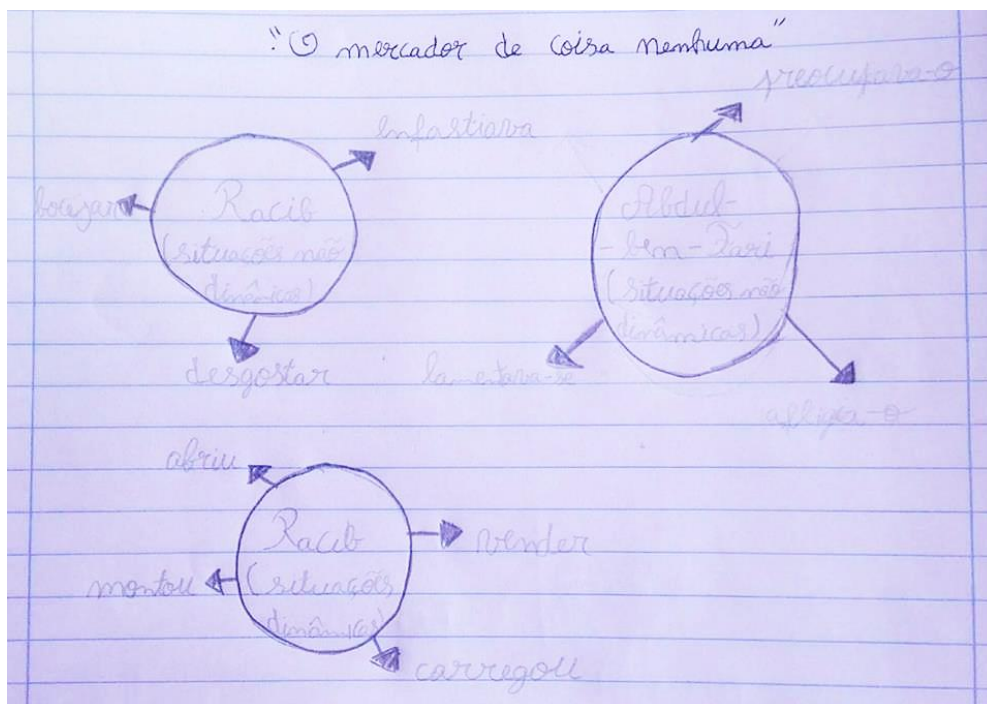 "O mercador de coisa nenhuma"
preocupava-o
enfastiava
bocejar
Racib
(situações não
dinâmicas)
Abdul-
-ben-Fari
(situações não
dinâmicas)
desgostar
lamentava-se
afligia-o
abriu
Racib
(situações
dinâmicas)
vender
montou
carregou